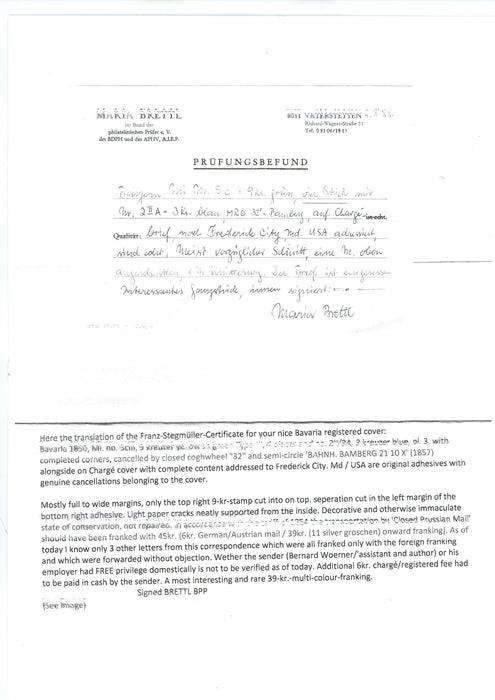 MARIA BRETTL
im Bund der
philatelistischen Prüfer e. V.
des BDPH und des APHV, A.I.E.P.
8011 VATERSTETTEN
Richard-Wagner-Straße 31
PRÜFUNGSBEFUND
Bayern Mi. Nr. 5c = 9Kr. grün, vier Stück mit
Nr. 2IIA = 3Kr. blau, MRO "32", Bamberg, auf Chargé-
Qualität: brief nach Frederick City Md. USA adressiert,
sind echt. Meist vorzüglicher Schnitt, eine M. oben
angeschnitten, Der Brief ist
Interessantes Ganzstück, innen signiert.
Maria Brettl
Here the translation of the Franz-Stegmüller-Certificate for your nice Bavaria registered cover:
Bavaria 1850, 9 kreuzer 3 kreuzer blue, pl. 3. with
completed corners, cancelled by closed coghwheel "32" and semi-circle 'BAHNH. BAMBERG 21 10 X' (1857)
alongside on Chargé cover with complete content addressed to Frederick City. Md / USA are original adhesives with
genuine cancellations belonging to the cover.
Mostly full to wide margins, only the top right 9-kr-stamp cut into on top. seperation cut in the left margin of the
bottom right adhesive. Light paper cracks neatly supported from the inside. Decorative and otherwise immaculate
state of conservation, not repaired. in accordance with the of 1854 the transportation by 'Closed Prussian Mail'
should have been franked with 45kr. (6kr. German/Austrian mail / 39kr. (11 silver groschen) onward franking). As of
today I know only 3 other letters from this correspondence which were all franked only with the foreign franking
and which were forwarded without objection. Wether the sender (Bernard Woerner/'assistant and author) or his
employer had FREE privilege domestically is not to be verified as of today. Additional 6kr. chargé/registered fee had
to be paid in cash by the sender. A most interesting and rare 39-kr.-multi-colour-franking.
Signed BRETTL BPP
(See image)